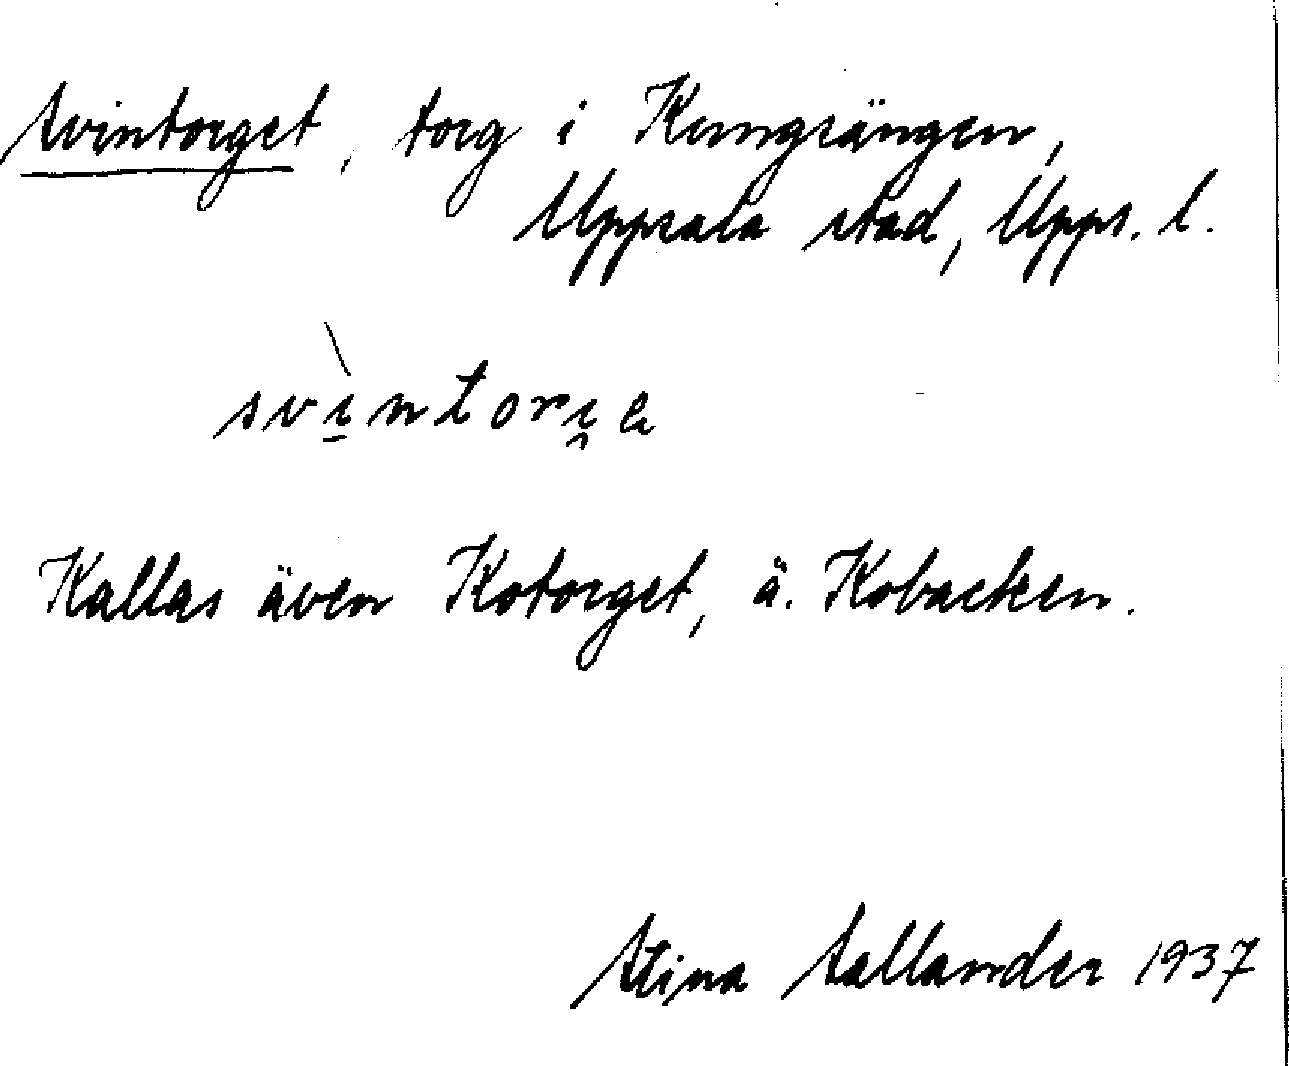 Svintorget, torg i Kungsängen,
Uppsala stad, Upps. l.
svìntori̯e
Kallas även Kotorget, ä. Kobacken.
Stina Sallander 1937